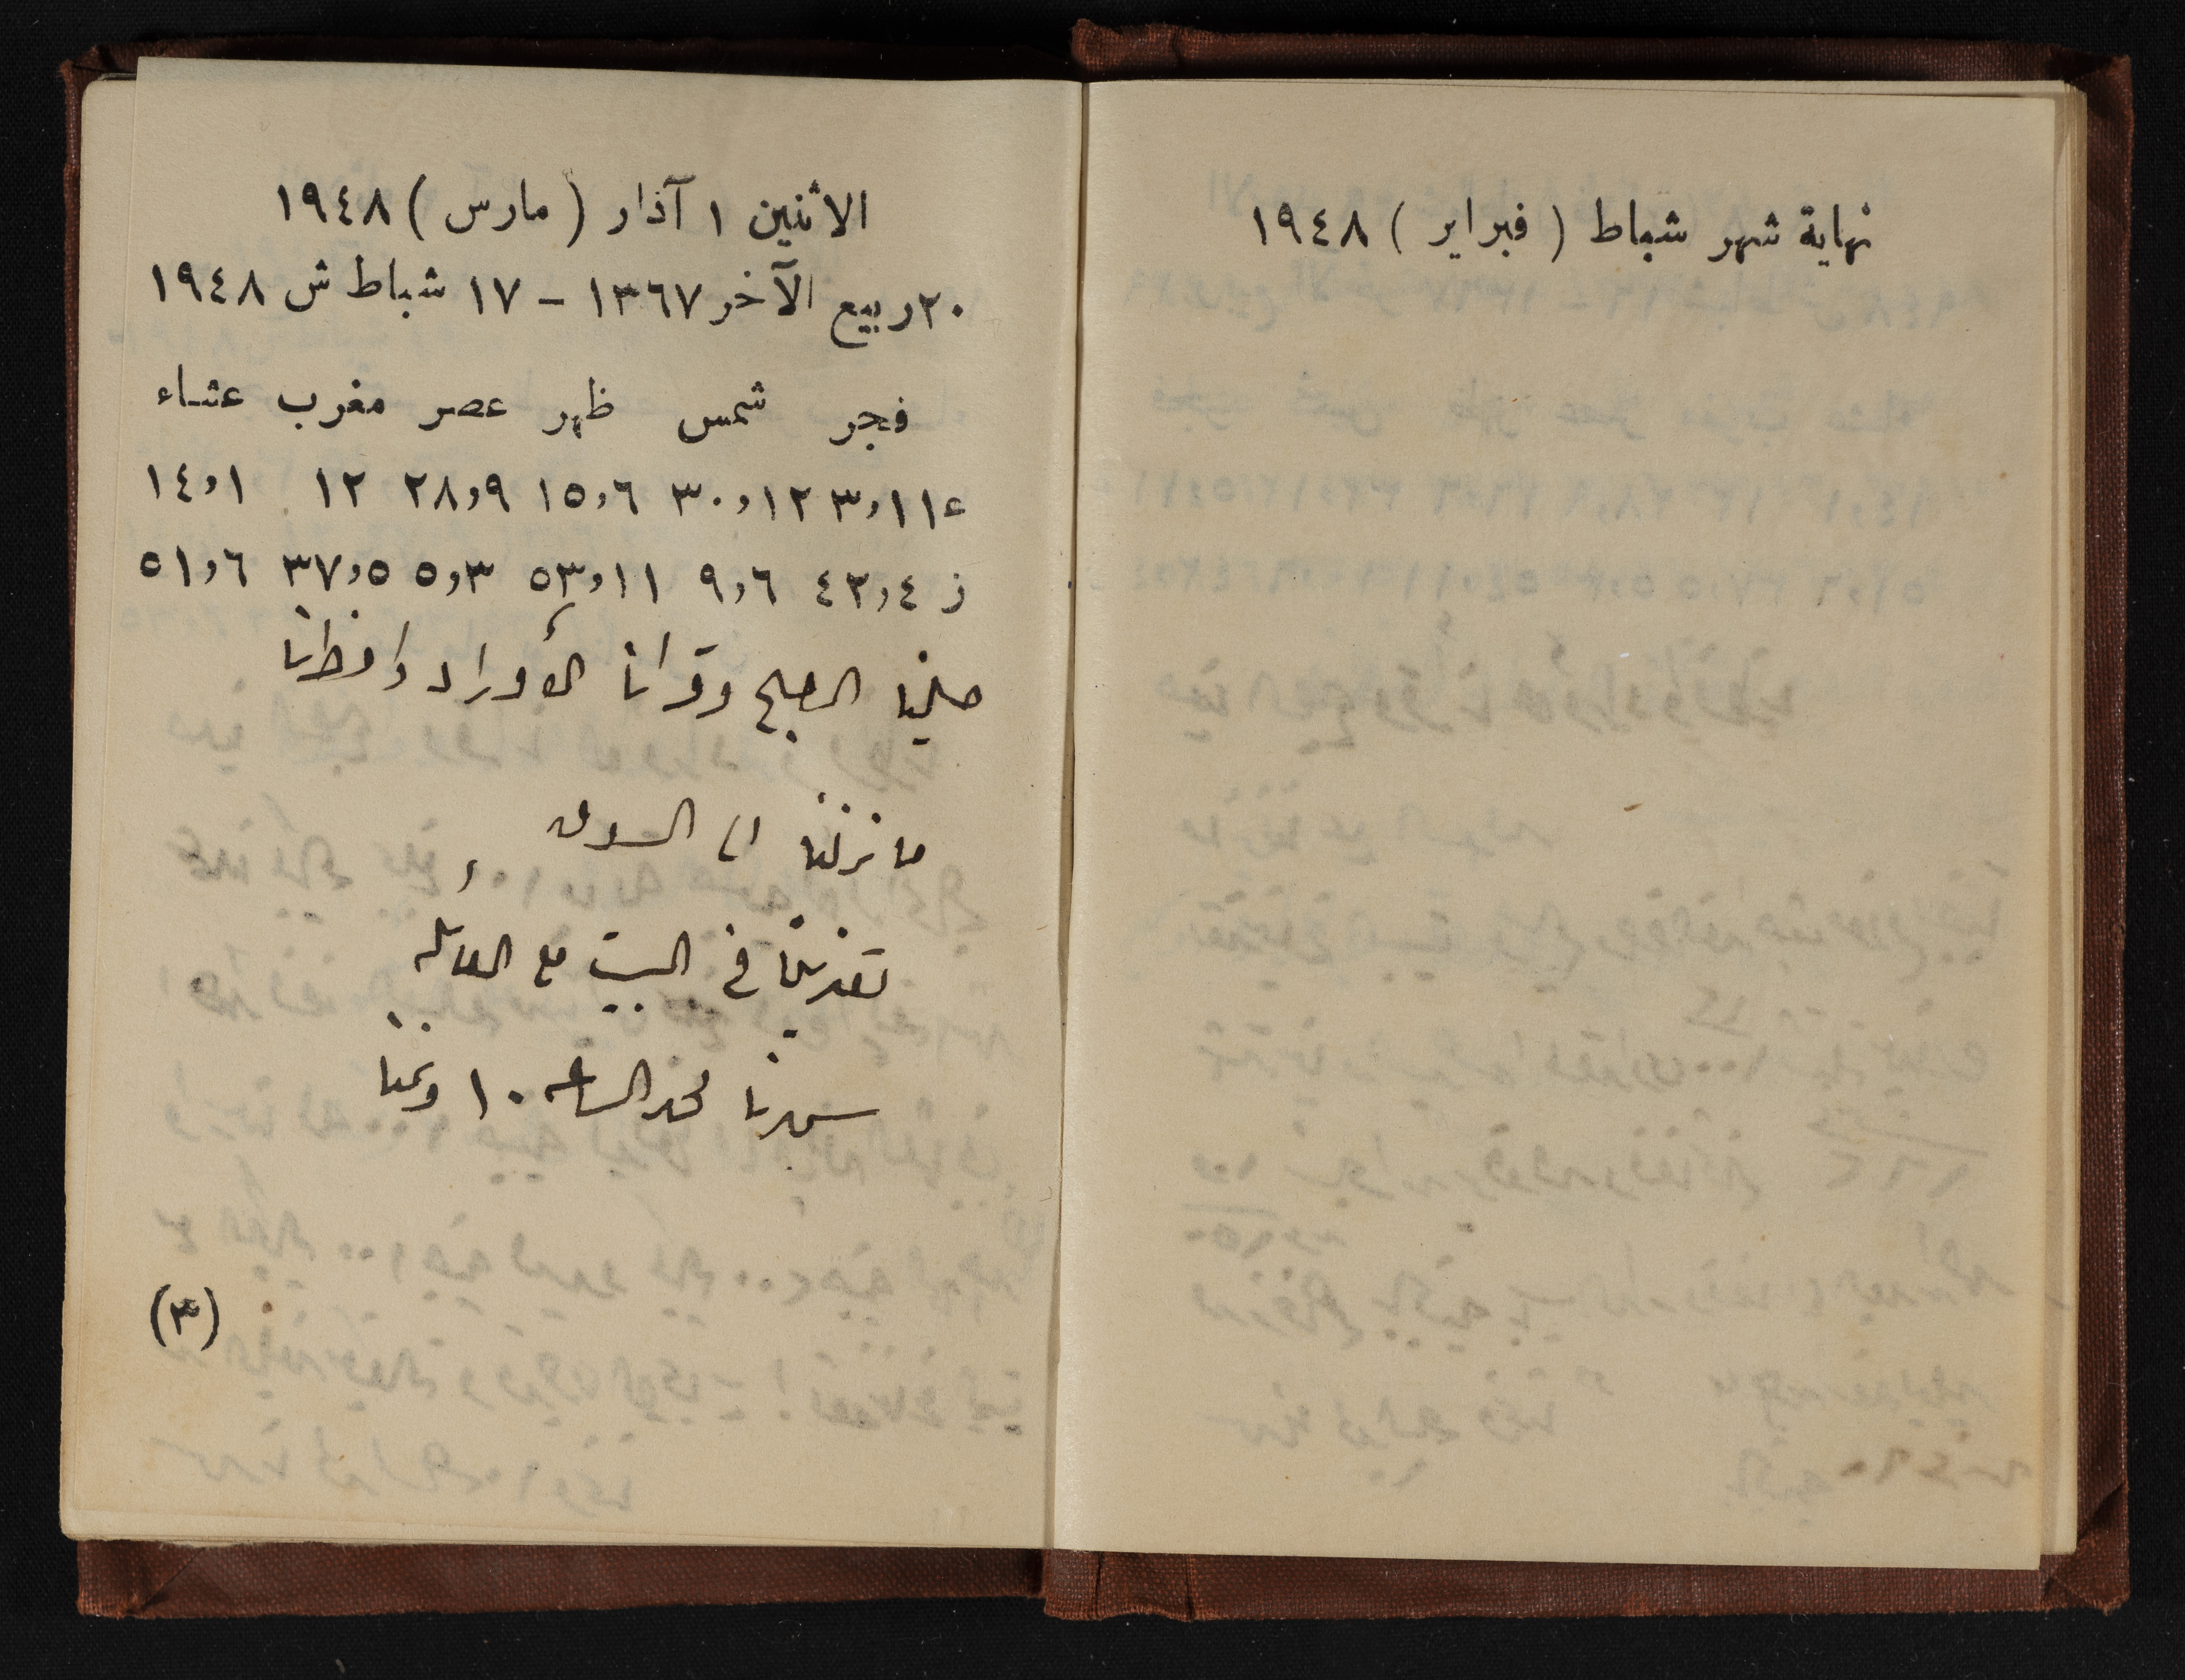 نهاية شهر شباط ( فبراير ) ١٩٤٨
الاثنين ١ آذار ( مارس ) ١٩٤٨
٢٠ ربيع الآخر ١٣٦٧ - ١٧ شباط ش ١٩٤٨
فجر شمس ظهر عصر مغرب عشاء
ع ٣,١١ ٣٠,١٢ ١٥,٦ ٢٨,٩ ١٢ ١٤,١
ز ٤٢,٤ ٩,٦ ٥٣,١١ ٥,٣ ٣٧,٥ ٥١,٦
صلينا الصبح وقرأنا الأوراد وافطرنا
ما نزلنا الى السوق
تغدينا في البيت مع العائلة
سهرنا لحد الساعه ١٠ ونمنا
(٣)